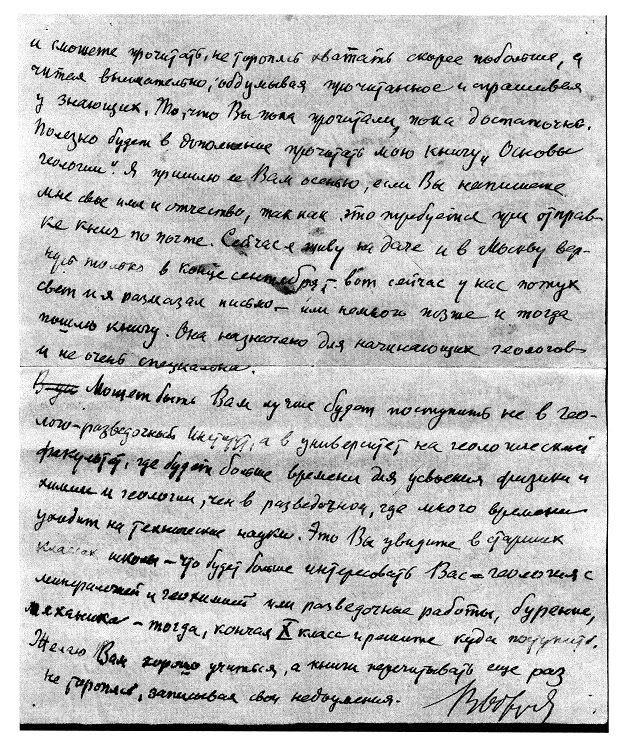 и сможете прочитать, не торопясь хватать скорее побольше, а
читая внимательно, обдумывая прочитанное и спрашивая
у знающих. То, что Вы пока прочитали, пока достаточно.
Полезно будет в дополнение прочитать мою книгу „Основы
геологии“. Я пришлю ее Вам осенью, если Вы напишете
мне свое имя и отчество, так как это требуется при отправ-
ке книг по почте. Сейчас я живу на даче и в Москву вер-
нусь только в конце сентября, – вот сейчас у нас потух
свет и я размазал письмо – или немного позже и тогда
пошлю книгу. Она назначена для начинающих геологов
и не очень специальна.
Может быть Вам лучше будет поступить не в гео-
лого-разведочный институт, а в университет на геологический
факультет, где будет больше времени для усвоения физики и
химии и геологии, чем в разведочном, где много времени
уходит на технические науки. Это Вы увидите в старших
классах школы – что будет больше интересовать Вас – геология с
минералогией и геохимией или разведочные работы, бурение,
механика – тогда, кончая X класс и решите куда поступить.
Желаю Вам хорошо учиться, а книги перечитывать еще раз
не торопясь, записывая свои недоумения.